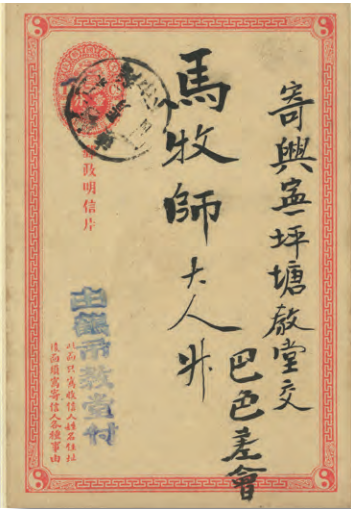 寄興寧坪塘教堂交
巴色差會
馬牧師大人升
郵政明信片
教堂付
此面只寫收信人姓名住址
後面寫寄信人各種事由